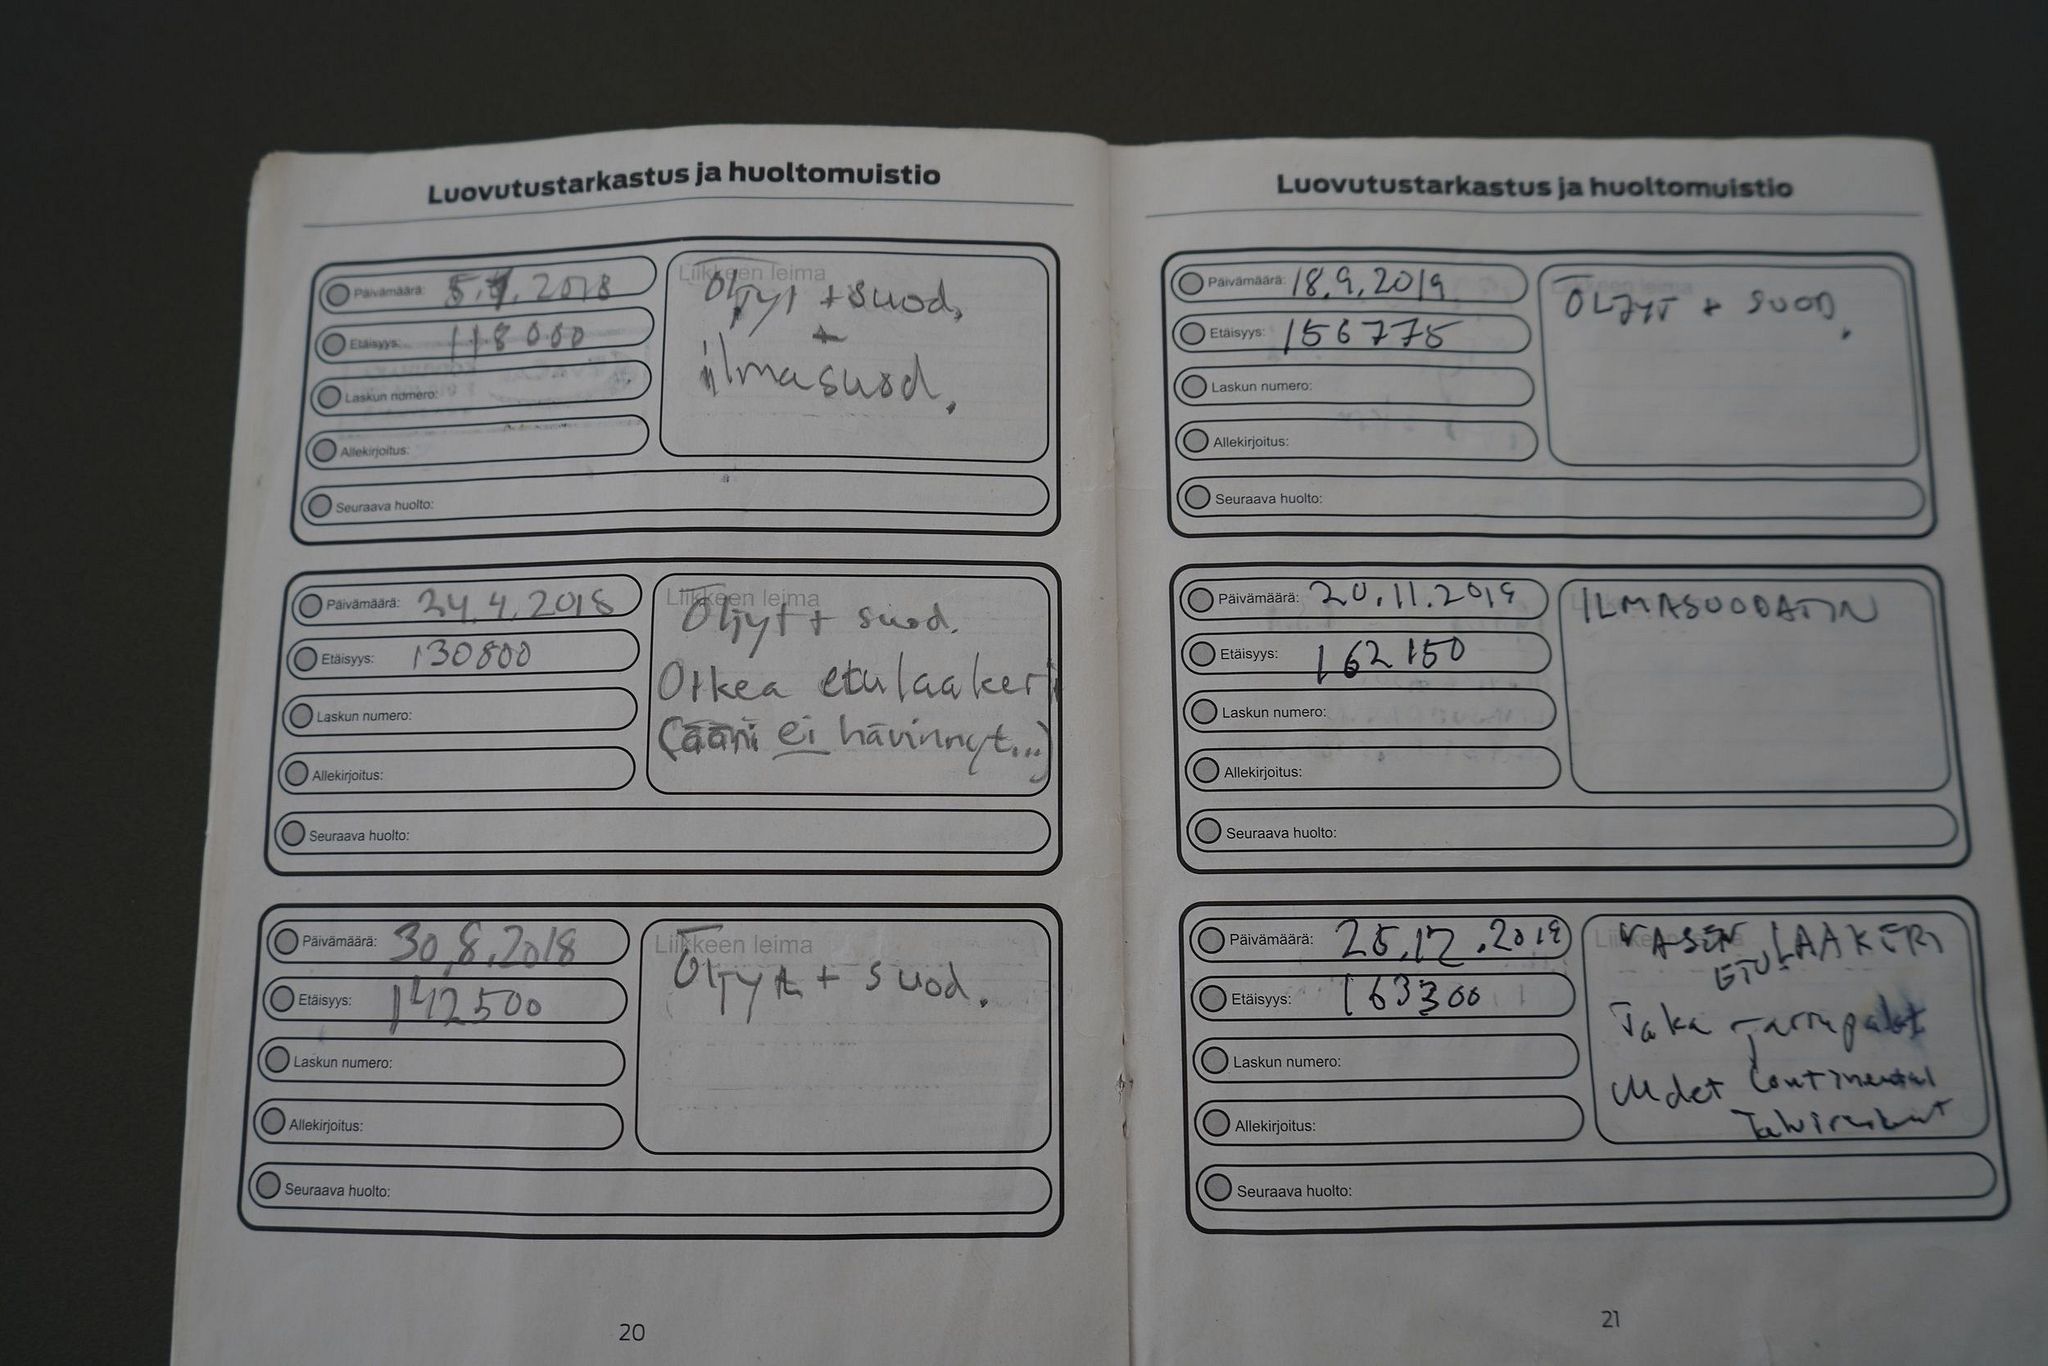 Luovutustarkastus ja huoltomuistio
Päivämäärä: 2018
Etäisyys: 118000
Laskun numero:
Allekirjoitus:
Seuraava huolto:
Liikkeen leima
Öljyt + suod.
+
ilmasuod.
Päivämäärä: 24.4.2018
Etäisyys: 130800
Laskun numero:
Allekirjoitus:
Seuraava huolto:
Liikkeen leima
Öljyt + suod.
Oikea etulaakeri
(ääni ei hävinnyt...)
Päivämäärä: 30.8.2018
Etäisyys: 142500
Laskun numero:
Allekirjoitus:
Seuraava huolto:
Liikkeen leima
Öljyt + suod.
20
Luovutustarkastus ja huoltomuistio
Päivämäärä: 18.9.2019
Etäisyys: 156775
Laskun numero:
Allekirjoitus:
Seuraava huolto:
Liikkeen leima
ÖLJYT + SUOD.
Päivämäärä: 20.11.2019
Etäisyys: 162150
Laskun numero:
Allekirjoitus:
Seuraava huolto:
ILMASUODATIN
Päivämäärä: 25.12.2019
Etäisyys: 163300
Laskun numero:
Allekirjoitus:
Seuraava huolto:
Liikkeen leima
VASEN
ETULAAKERI
Taka jarrupalat
Uudet Continental
Talvirenkaat
21